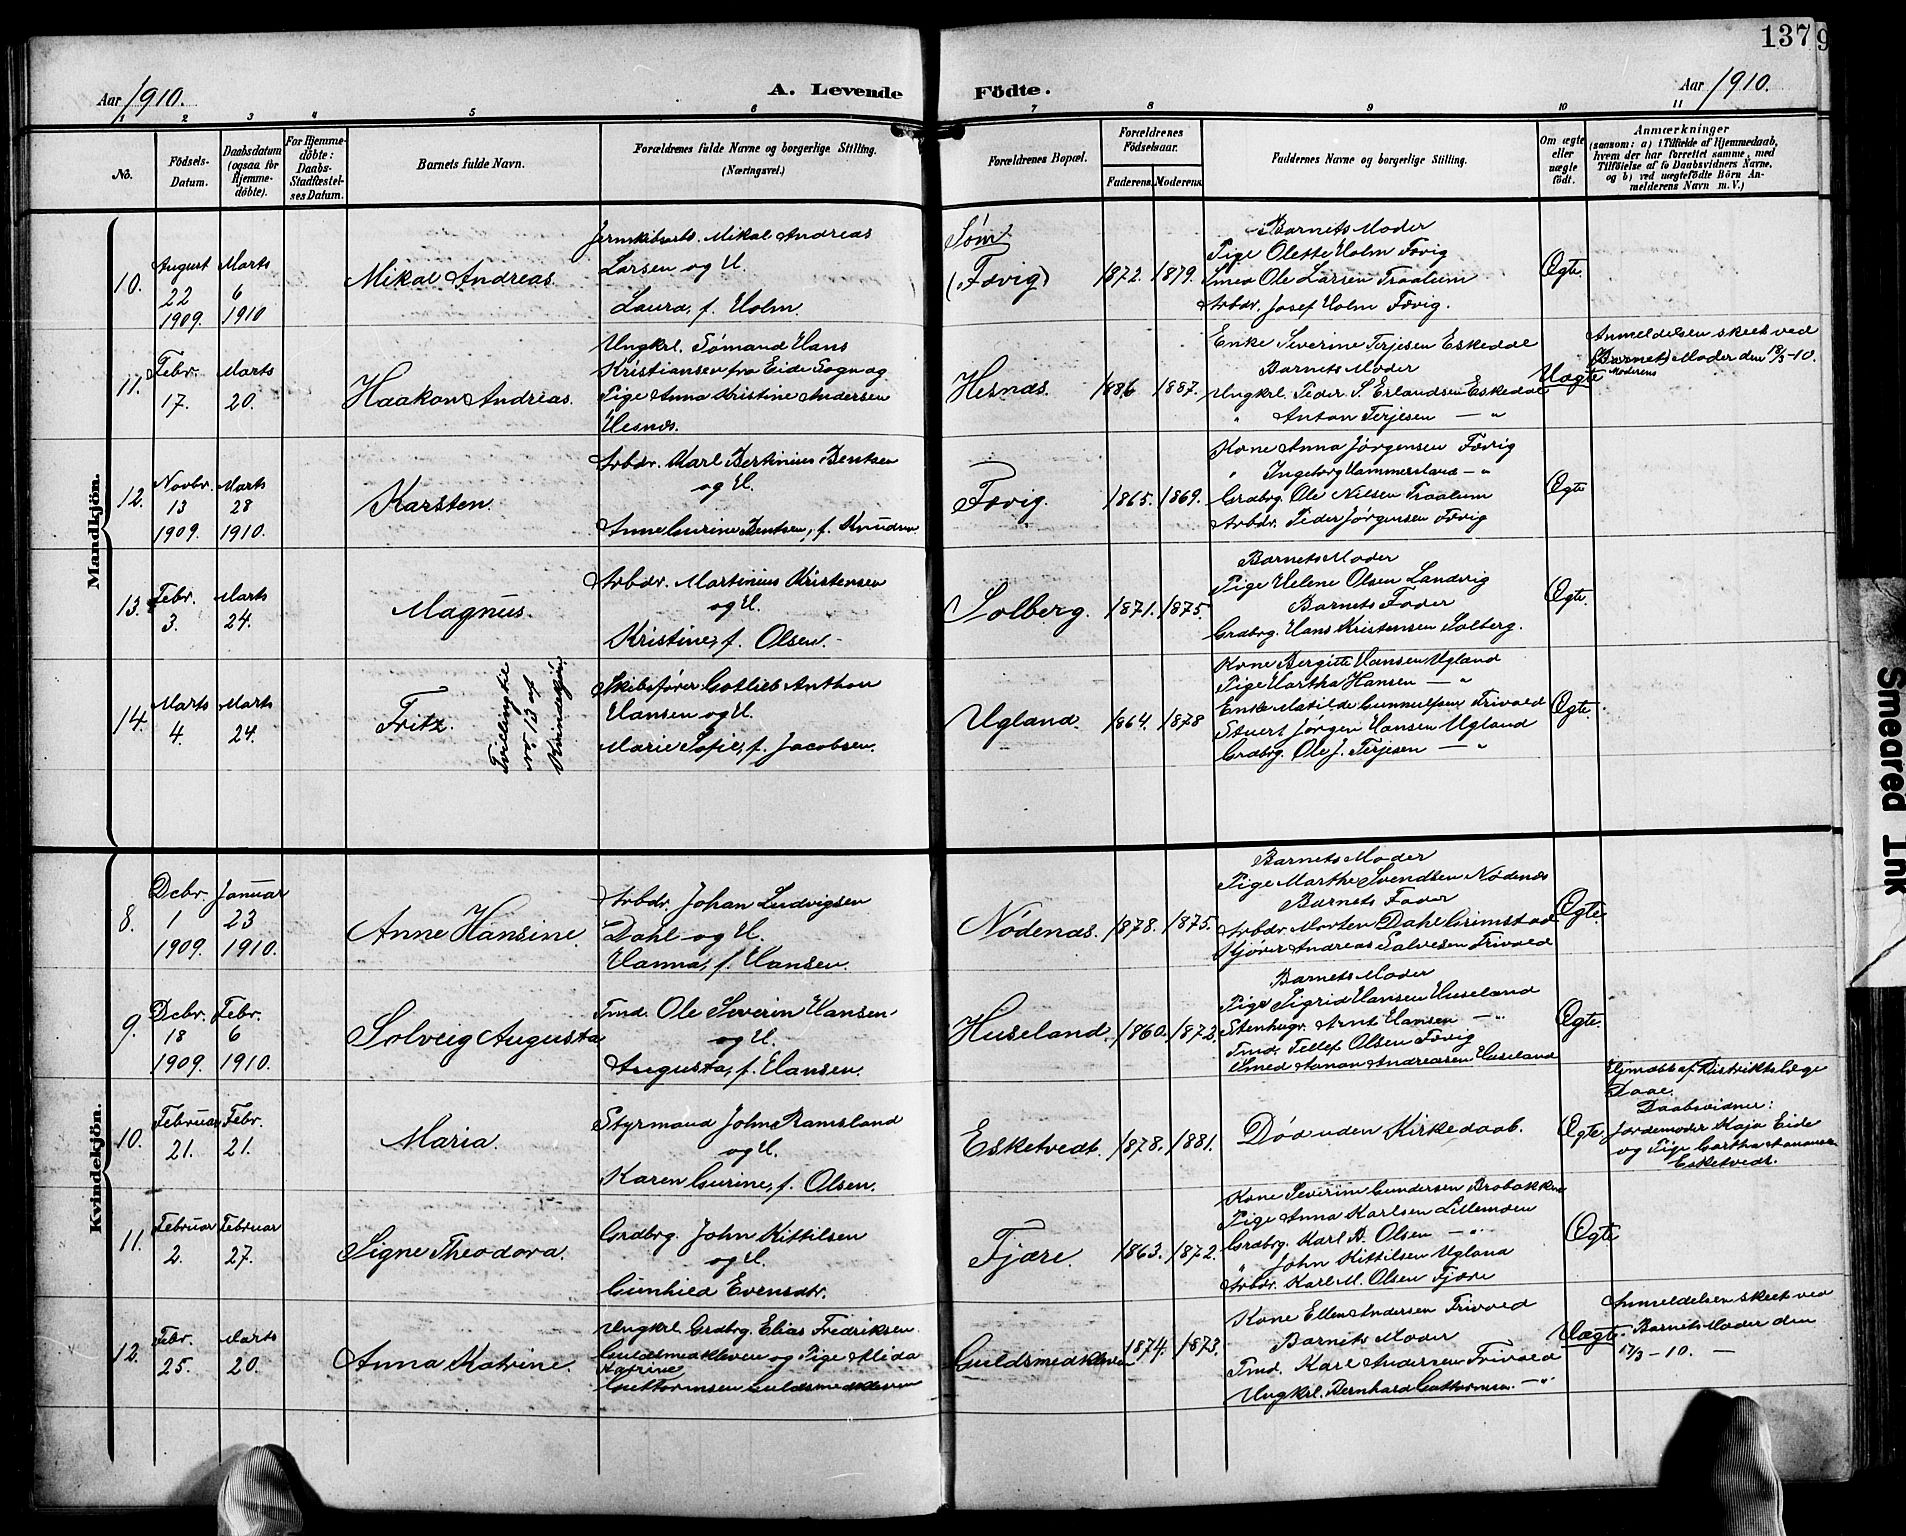 137
Aar 1910.
A. Levende Fødte.
Aar 1910.
1 2 3 4 5 6 7 8 9 10 11
No.
Födsels-
Datum.
Daabsdatum
(ogsaa for
Hjemme-
döbte).
For Hjemme-
döbte:
Daabs-
Stadfæstel-
ses Datum.
Barnets fulde Navn.
Forældrenes fulde Navne og borgerlige Stilling.
(Næringsvei.)
Forældrenes Bopæl.
Forældrenes
Födselsaar.
Faderens. Moderens.
Faddernes Navne og borgerlige Stilling.
Om ægte
eller
uægte
födt.
Anmærkninger
(saasom: a) i Tilfælde af Hjemmedaab,
hvem der har forrettet samme, med
Tilföielse af to Daabsvidners Navne,
og b) ved uægtefödte Börn An-
melderens Navn m. V.)
Mandkjön.
10.
August
22
1909.
Marts
6
1910
Mikal Andreas.
Mikal Andreas
Larsen og H.
Laura, f. Holm.
Søm
(Fævig)
1872. 1879.
Barnets Moder
Pige Olette Holm Fævig
Smed Ole Larsen Traalum
Arbdr. Josef Holm Fævig.
Ægte.
11.
Febr.
17.
Marts
20.
Haakon Andreas.
Ungkrl. Sømand Hans
Kristiansen fra Eide Sogn og
Pige Anna Kristine Andersen
Hesnæs.
Hesnæs.
1886 1887.
Enke Severine Terjesen Eskedal
Barnets Moder
Ungkrl. Peder S. Erlandsen Eskedal
" Anton Terjesen — "
Uægte
Anmeldelsen skeet ved
(Barnets) Moder den 18/3-10.
Moderens
12.
Novbr.
13
1909.
Marts
28
1910.
Karsten.
Arbdr. Karl Bertinius Bentsen
og H.
Anne Gurine Bentsen, f. Knudsen
Fævig.
1865. 1869.
Kone Anna Jørgensen Fævig
" Ingeborg Hammersland — "
Grdbrg. Ole Nilsen Traalum
Arbdr. Peder Jørgensen Fævig
Ægte
13.
Febr.
3.
Marts
24.
Magnus.
Arbdr. Martinius Kristensen
og H.
Kristine, f. Olsen.
Solberg.
1871. 1875.
Barnets Moder
Pige Helene Olsen Landvig
Barnets Fader
Grdbrg. Hans Kristensen Solberg.
Ægte.
14.
Marts
4.
Marts
24.
Fritz.
Tvilling til
No 13 af
Kvindekjøn.
Skibsfører Gotlieb Anthon
Hansen og H.
Marie Sofie, f. Jacobsen.
Ugland.
1864. 1878
Kone Bergitte Hansen Ugland
Pige Martha Hansen — "
Enke Matilde Gunnulfsen Trivold
Stuert Jørgen Hansen Ugland
Grdbrg. Ole J. Terjesen — "
Ægte.
Kvindekjön.
8.
Dcbr.
1
1909.
Januar
23
1910.
Anne Hansine.
Arbdr. Johan Ludvigsen
Dahl og H.
Hanna, f. Hansen.
Nødenæs.
1878. 1875.
Barnets Moder
Pige Marthe Svendsen Nødenæs
Barnets Fader
Arbdr. Morten Dahl Grimstad
Kjører Andreas Salvesen Trivold
Ægte.
9.
Dcbr.
18
1909.
Febr.
6
1910.
Solveig Augusta
Tmd. Ole Severin Hansen
og H.
Augusta, f. Hansen.
Huseland.
1860. 1872.
Barnets Moder
Pige Sigrid Hansen Huseland
Stenhugr. Arnt Hansen — "
Tmd. Tellef Olsen Fævig
Smed Aanon Andreasen Huseland
Ægte.
10.
Februar
21.
Febr.
21.
Maria.
Styrmand John Ramsland
og H.
Karen Gurine, f. Olsen.
Esketvedt.
1878. 1881.
Død uden Kirkedaab.
Ægte
Hjmdøbt af Distriktslæge
Daae.
Daabsvidner:
Jordemoder Kaja Eide
og Pige Aanonsen
Esketvedt.
11.
Februar
2.
Februar
27.
Signe Theodora.
Grdbrg. John Kittilsen
og H.
Gunhild Evensdtr.
Fjære.
1863. 1872.
Kone Severine Gundersen Brobakken
Pige Anna Karlsen Lillemoen
Grdbrg. Karl A. Olsen — "
" John Kittilsen Ugland
Arbdr. Karl M. Olsen Fjære
Ægte
12.
Febr.
25.
Marts
20.
Anna Katrine.
Ungkrl. Grdbrg. Elias Fredriksen
Guldsmedkleven og Pige Alida
Katrine
Guttormsen Guldsmedkleven
Guldsmedkleven
1874. 1873.
Kone Ellen Andersen Trivold
Barnets Moder
Tmd. Karl Andersen Trivold
Ungkrl. Bernhard Guttormsen — "
Uægte.
Anmeldelsen skeet ved
Barnets Moder den
17/3-10. —
Smeared Ink